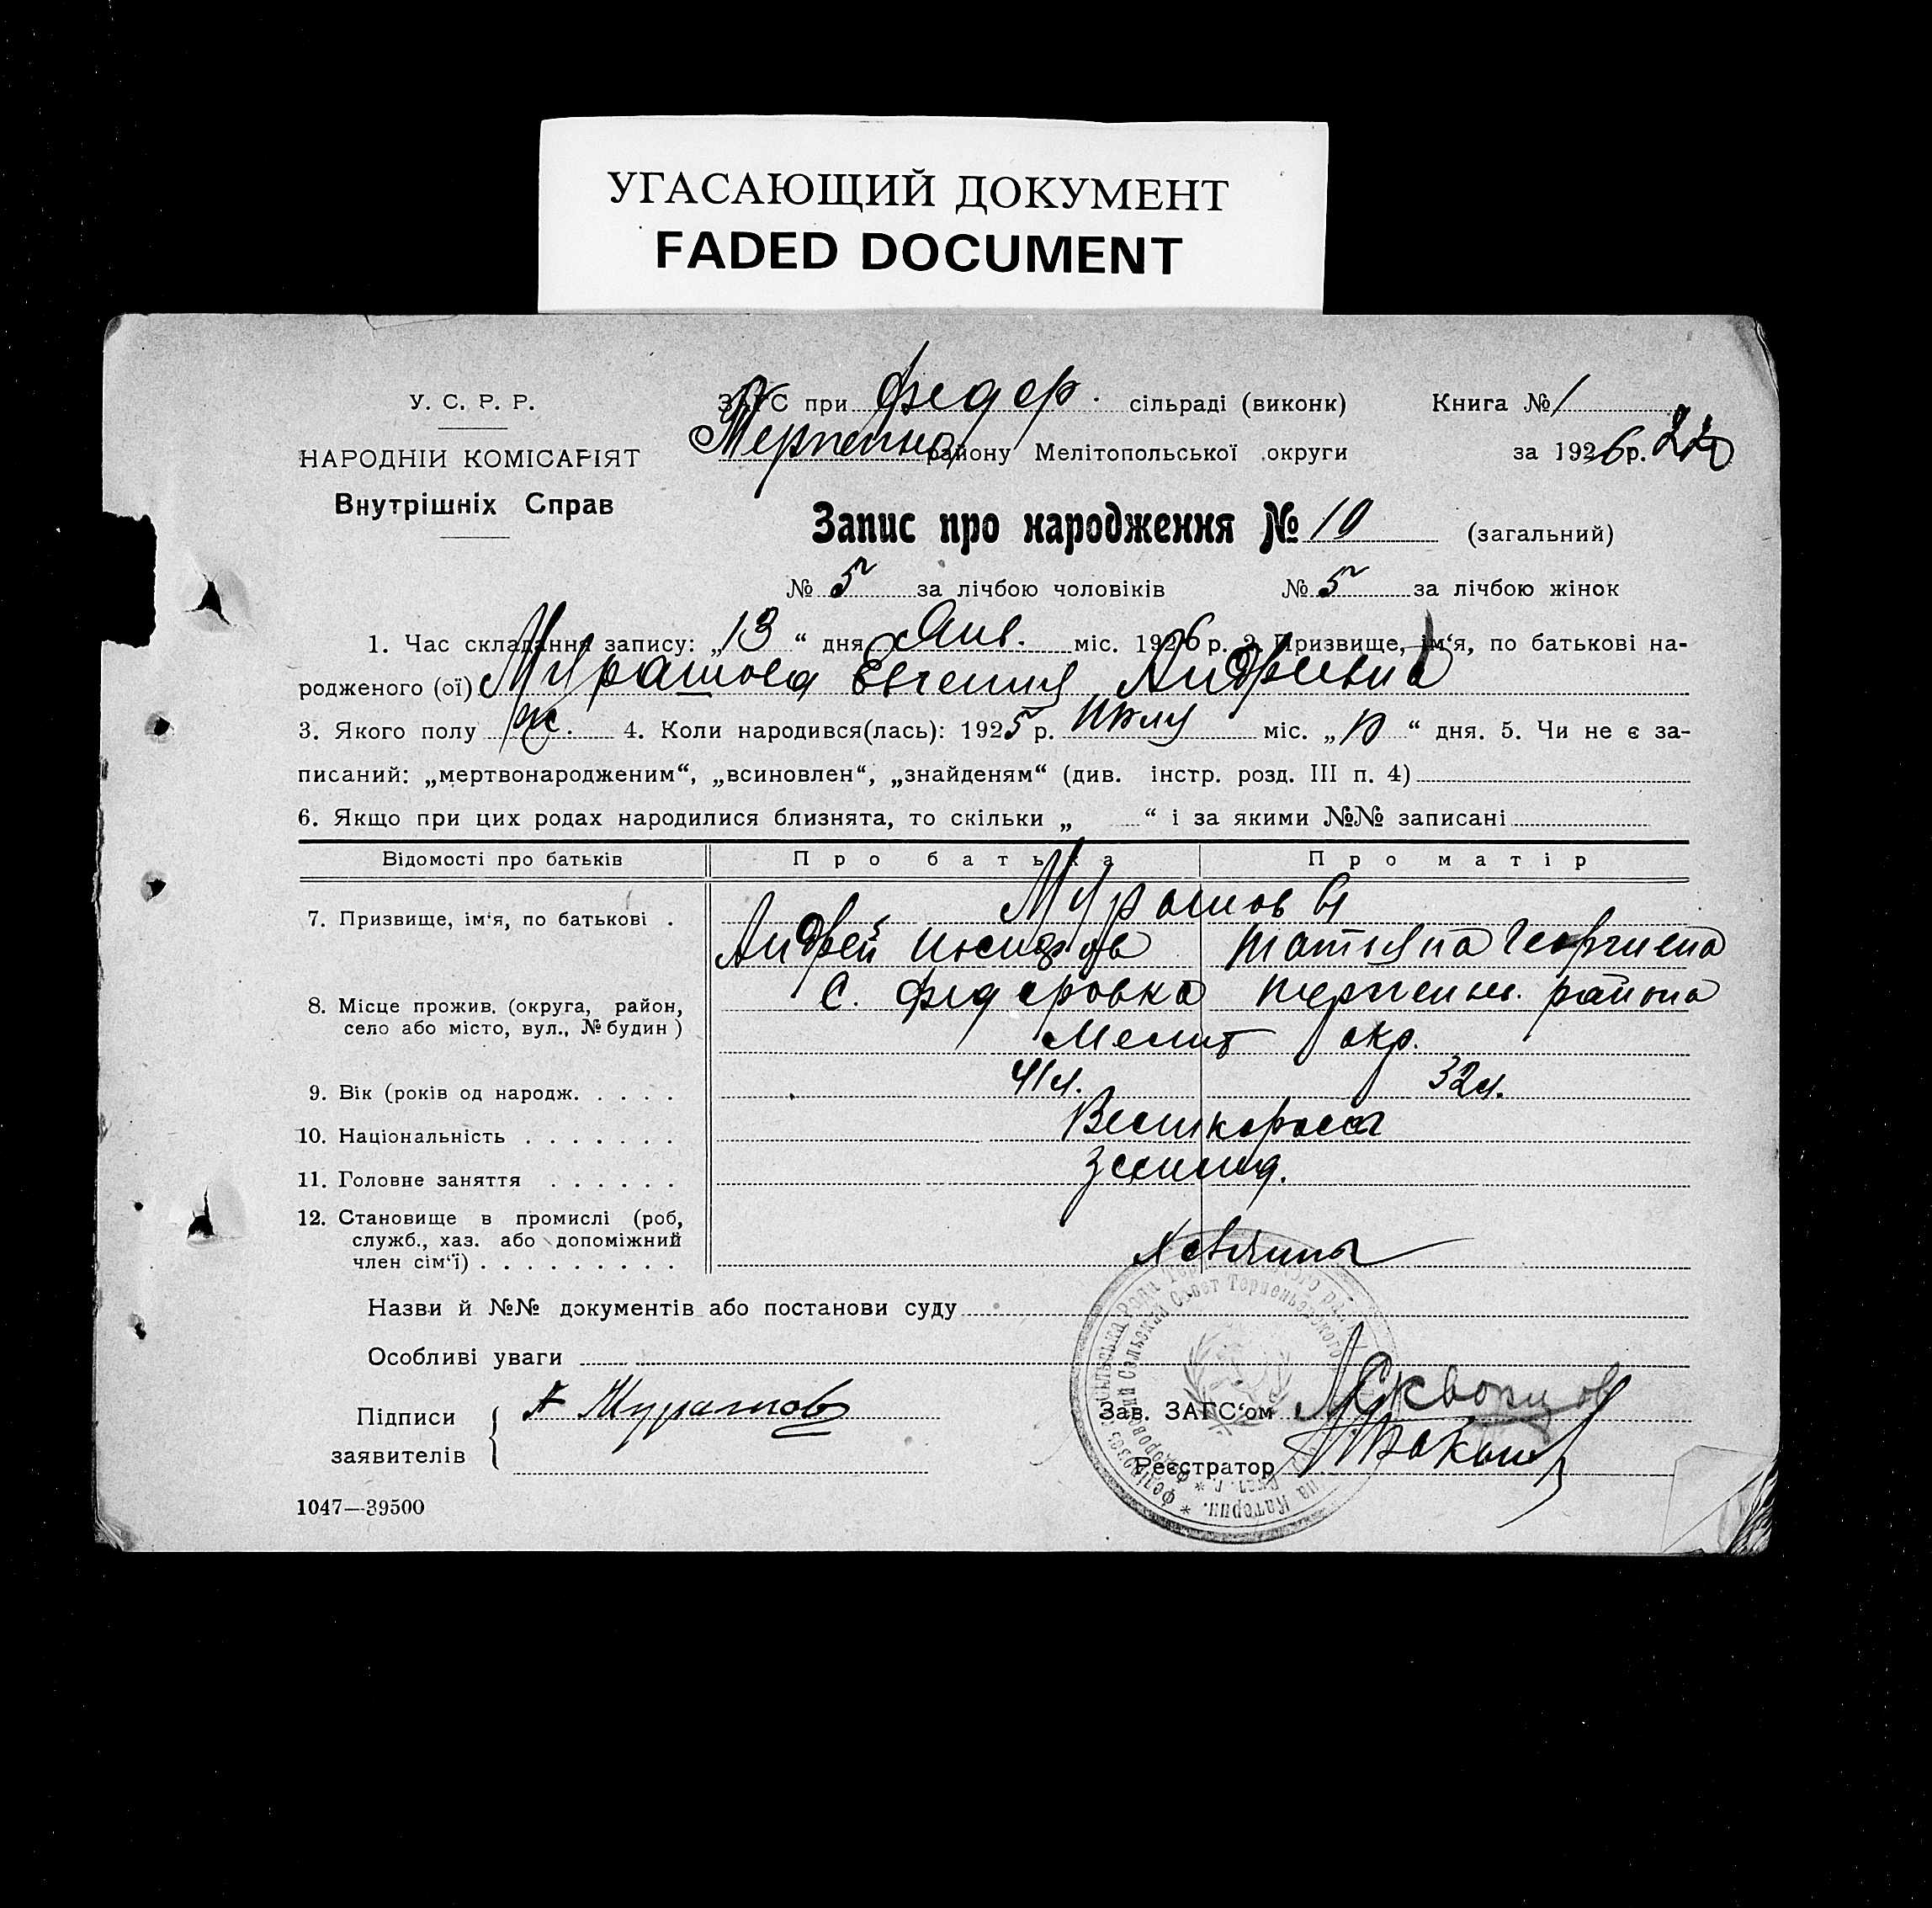 УГАСАЮЩИЙ ДОКУМЕНТ
FADED DOCUMENT
У. С. Р. Р.
НАРОДНІЙ КОМІСАРІЯТ
Внутрішніх Справ
ЗАГС при Федор. сільраді (виконк) Книга № 1
Терпении району Мелітопольської округи за 1926 р.
Запис про народження № 10 (загальний)
№ 5 за лічбою чоловіків № 5 за лічбою жінок
1. Час складання запису: „13“ дня Янв. міс. 1926 р. 2. Призвище, ім‘я, по батькові на-
родженого (ої) Мурашова Евгения Андреевна
3. Якого полу ж. 4. Коли народився(лась): 1925 р. міс. „10“ дня. 5. Чи не є за-
писаний: „мертвонародженим“, „всиновлен“, „знайденям“ (див. інстр. розд. III п. 4)
6. Якщо при цих родах народилися близнята, то скільки „ “ і за якими №№ записані
Відомості про батьків Про батька Про матір
7. Призвище, ім‘я, по батькові . Мурашовы
Андрей Иосифов Татьяна Георгиева
8. Місце прожив. (округа, район, село або місто, вул., № будин) С. Федоровка Терпеньев. района
Мелит окр.
9. Вік (років од народж. . . . . 41 л. 32 л.
10. Національність . . . . . . . Великоросы
11. Головне заняття . . . . . . землед.
12. Становище в промислі (роб,
служб., хаз. або допоміжний
член сім‘ї) . . . . . . . . . хозяины
Назви й №№ документів або постанови суду
Особливі уваги
Підписи заявителів А Мурашов
Зав. ЗАГС‘ом Скворцов
Реєстратор
1047—39500